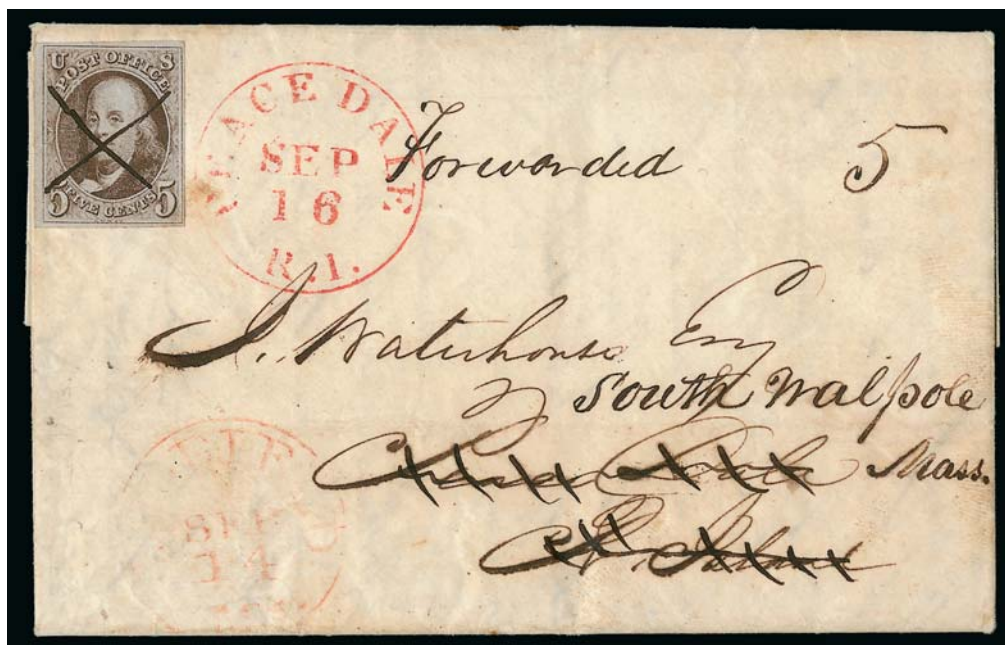 U S
POST OFFICE
5 FIVE CENTS 5
PEACE DALE
SEP
16
R.I.
Forwarded 5
J. Waterhouse Esq
South Walpole
Mass.
SEP
14